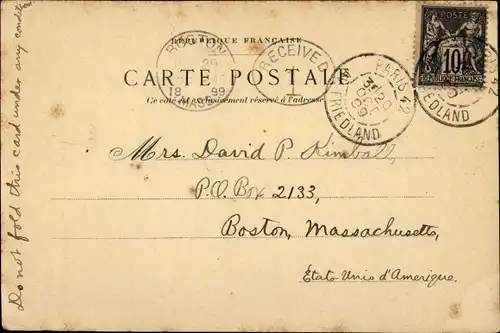 RÉPUBLIQUE FRANÇAISE
CARTE POSTALE
Ce côté est exclusivement réservé à l'adresse
BOSTON
MASS.
18 99
RECEIVED
1
PARIS 42
FRIEDLAND
POSTE
10
RÉPUBLIQUE FRANÇAISE
PARIS 42
FRIEDLAND
Mrs. David P. Kimball,
P.O. Box 2133,
Boston, Massachusetts,
États-Unis d'Amérique.
Do not fold this card under any condit